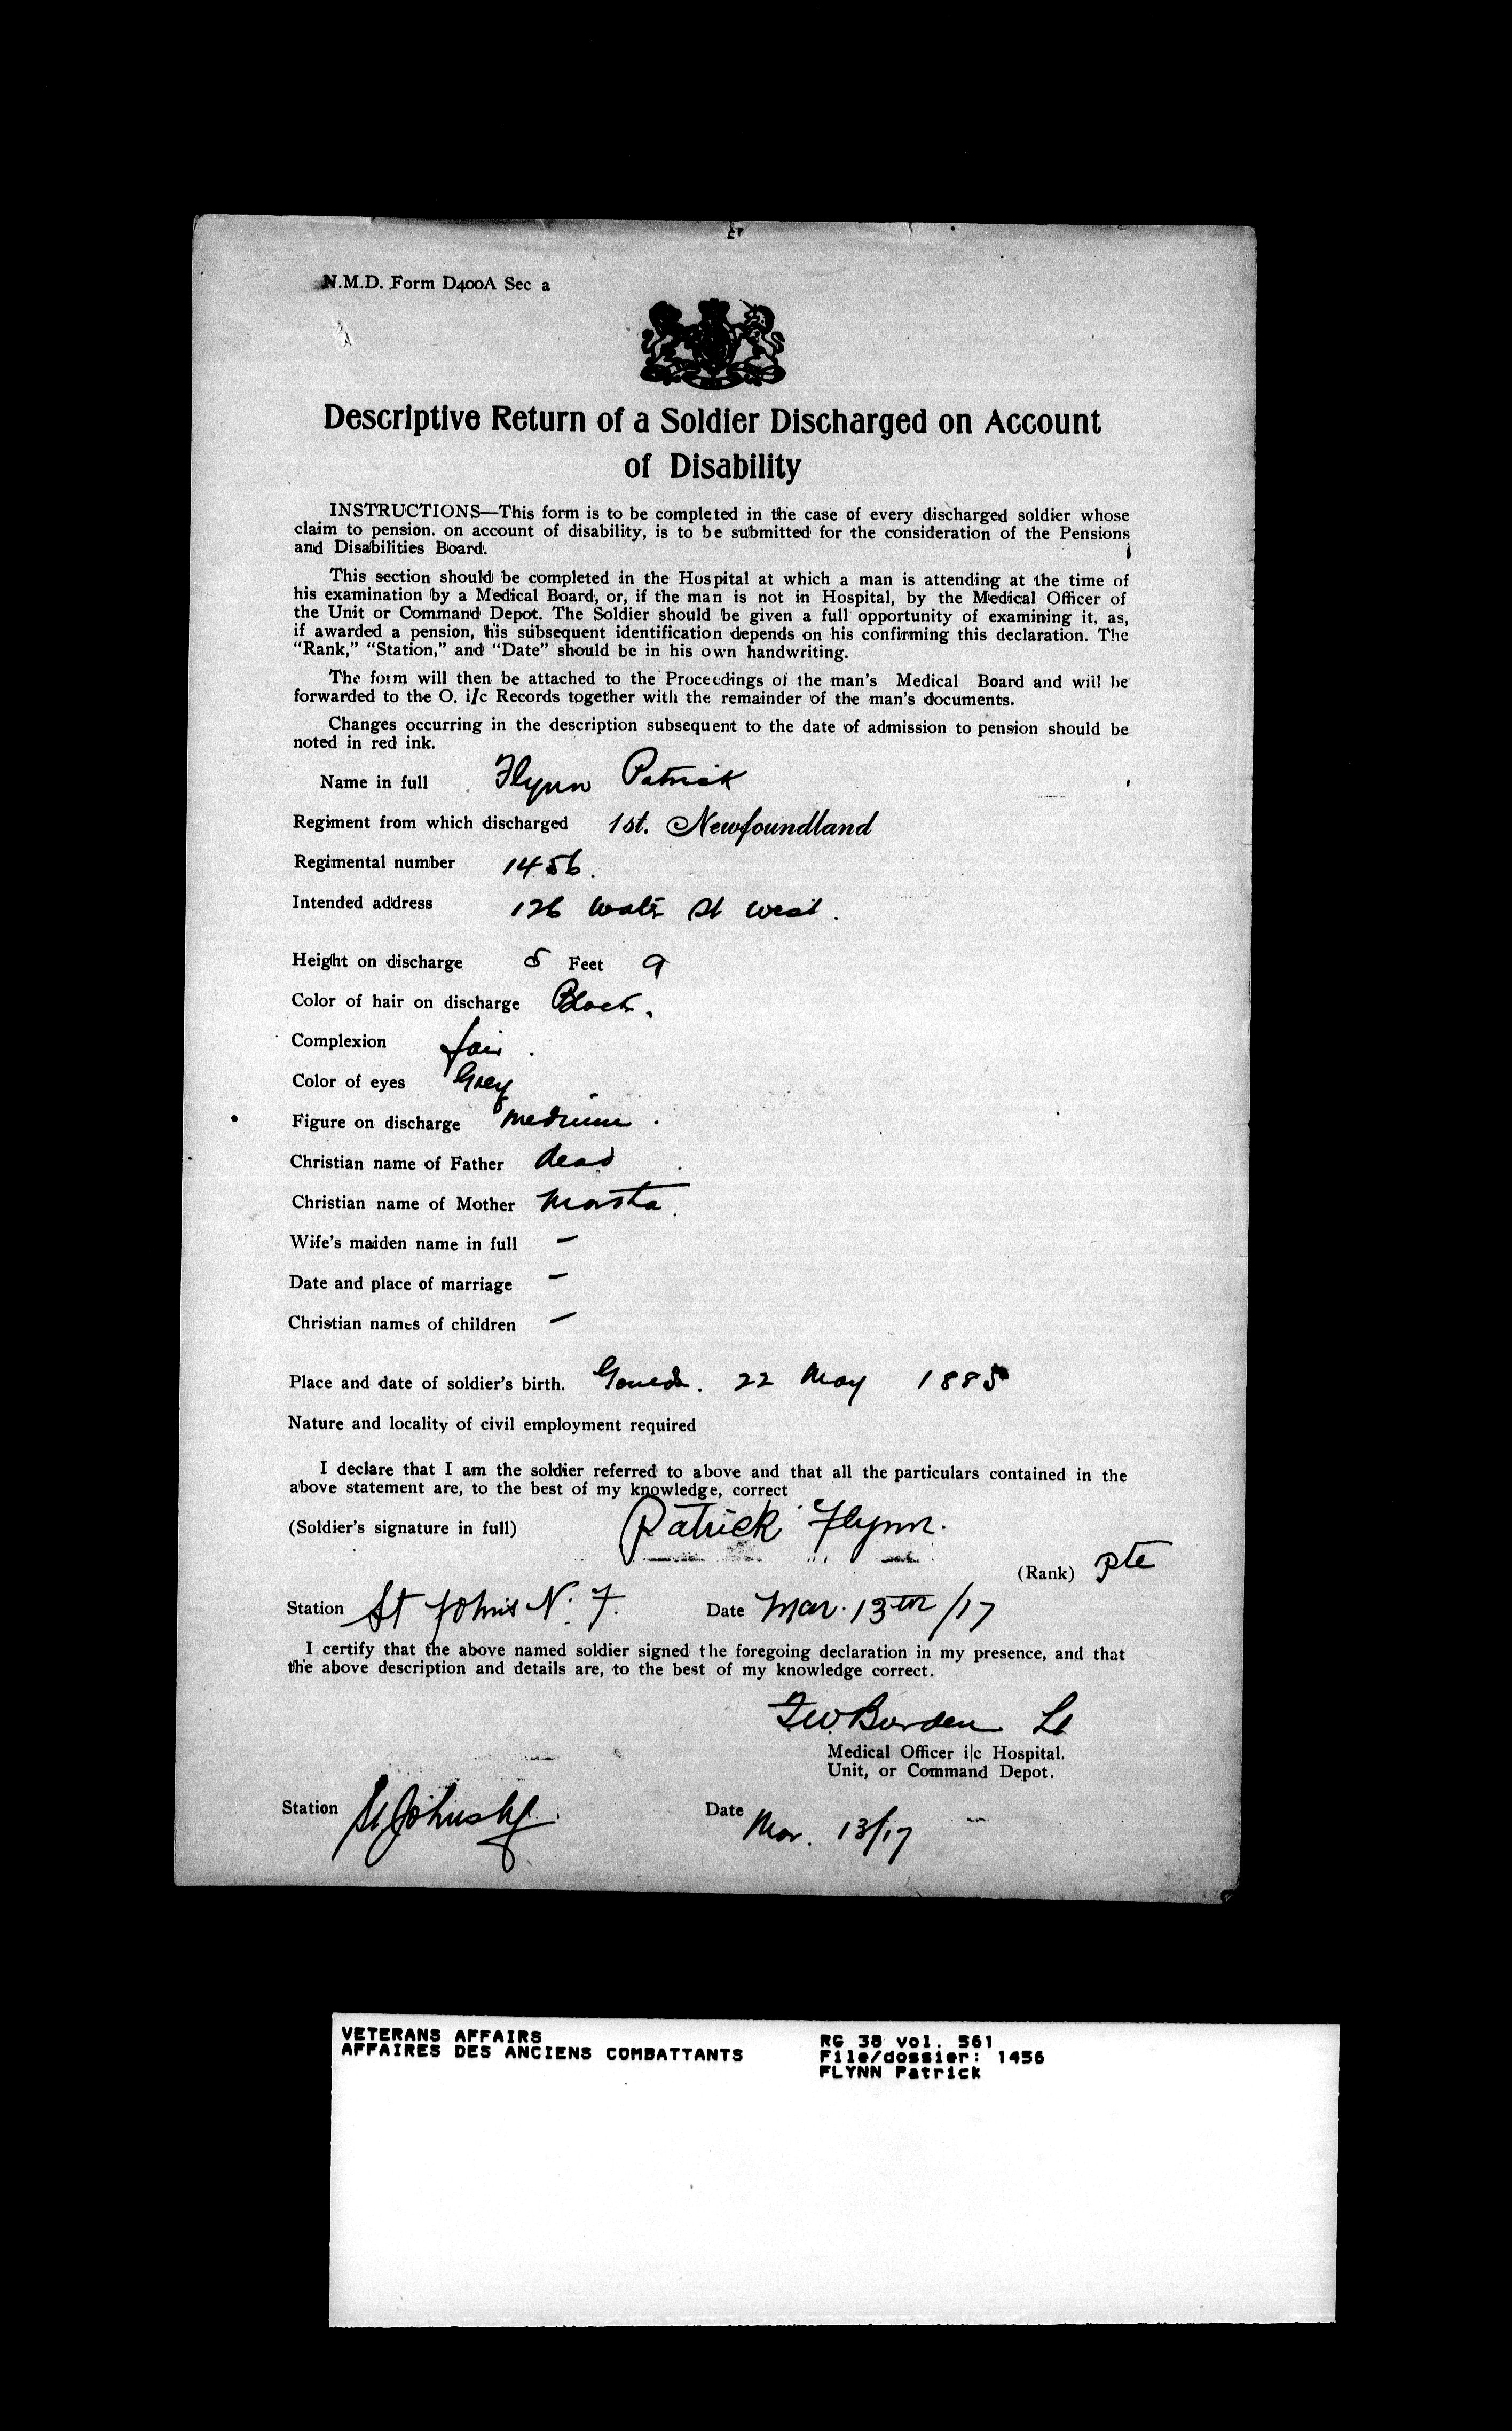 N.M.D. Form D400A Sec a
Descriptive Return of a Soldier Discharged on Account
of Disability
INSTRUCTIONS—This form is to be completed in the case of every discharged soldier whose
claim to pension. on account of disability, is to be submitted for the consideration of the Pensions
and Disabilities Board.
This section should be completed in the Hospital at which a man is attending at the time of
his examination by a Medical Board, or, if the man is not in Hospital, by the Medical Officer of
the Unit or Command Depot. The Soldier should be given a full opportunity of examining it, as,
if awarded a pension, his subsequent identification depends on his confirming this declaration. The
“Rank,” “Station,” and “Date” should be in his own handwriting.
The form will then be attached to the Proceedings of the man's Medical Board and will be
forwarded to the O. i/c Records together with the remainder of the man's documents.
Changes occurring in the description subsequent to the date of admission to pension should be
noted in red ink.
Name in full Flynn Patrick
Regiment from which discharged 1st. Newfoundland
Regimental number 1456.
Intended address 126 Water St West.
Height on discharge 5 Feet 9
Color of hair on discharge Black.
Complexion fair.
Color of eyes Grey
Figure on discharge medium.
Christian name of Father dead
Christian name of Mother
Wife's maiden name in full –
Date and place of marriage –
Christian names of children –
Place and date of soldier's birth. Goulds. 22 May 1885
Nature and locality of civil employment required
I declare that I am the soldier referred to above and that all the particulars contained in the
above statement are, to the best of my knowledge, correct
(Soldier's signature in full) Patrick Flynn.
(Rank) Pte
Station St John's N. F. Date Mar. 13th/17
I certify that the above named soldier signed the foregoing declaration in my presence, and that
the above description and details are, to the best of my knowledge correct.
FW Burden Lt
Medical Officer i|c Hospital.
Unit, or Command Depot.
Station St Johns Nf. Date Mar. 13/17
VETERANS AFFAIRS RG 38 vol. 561
AFFAIRES DES ANCIENS COMBATTANTS File/dossier: 1456
FLYNN Patrick